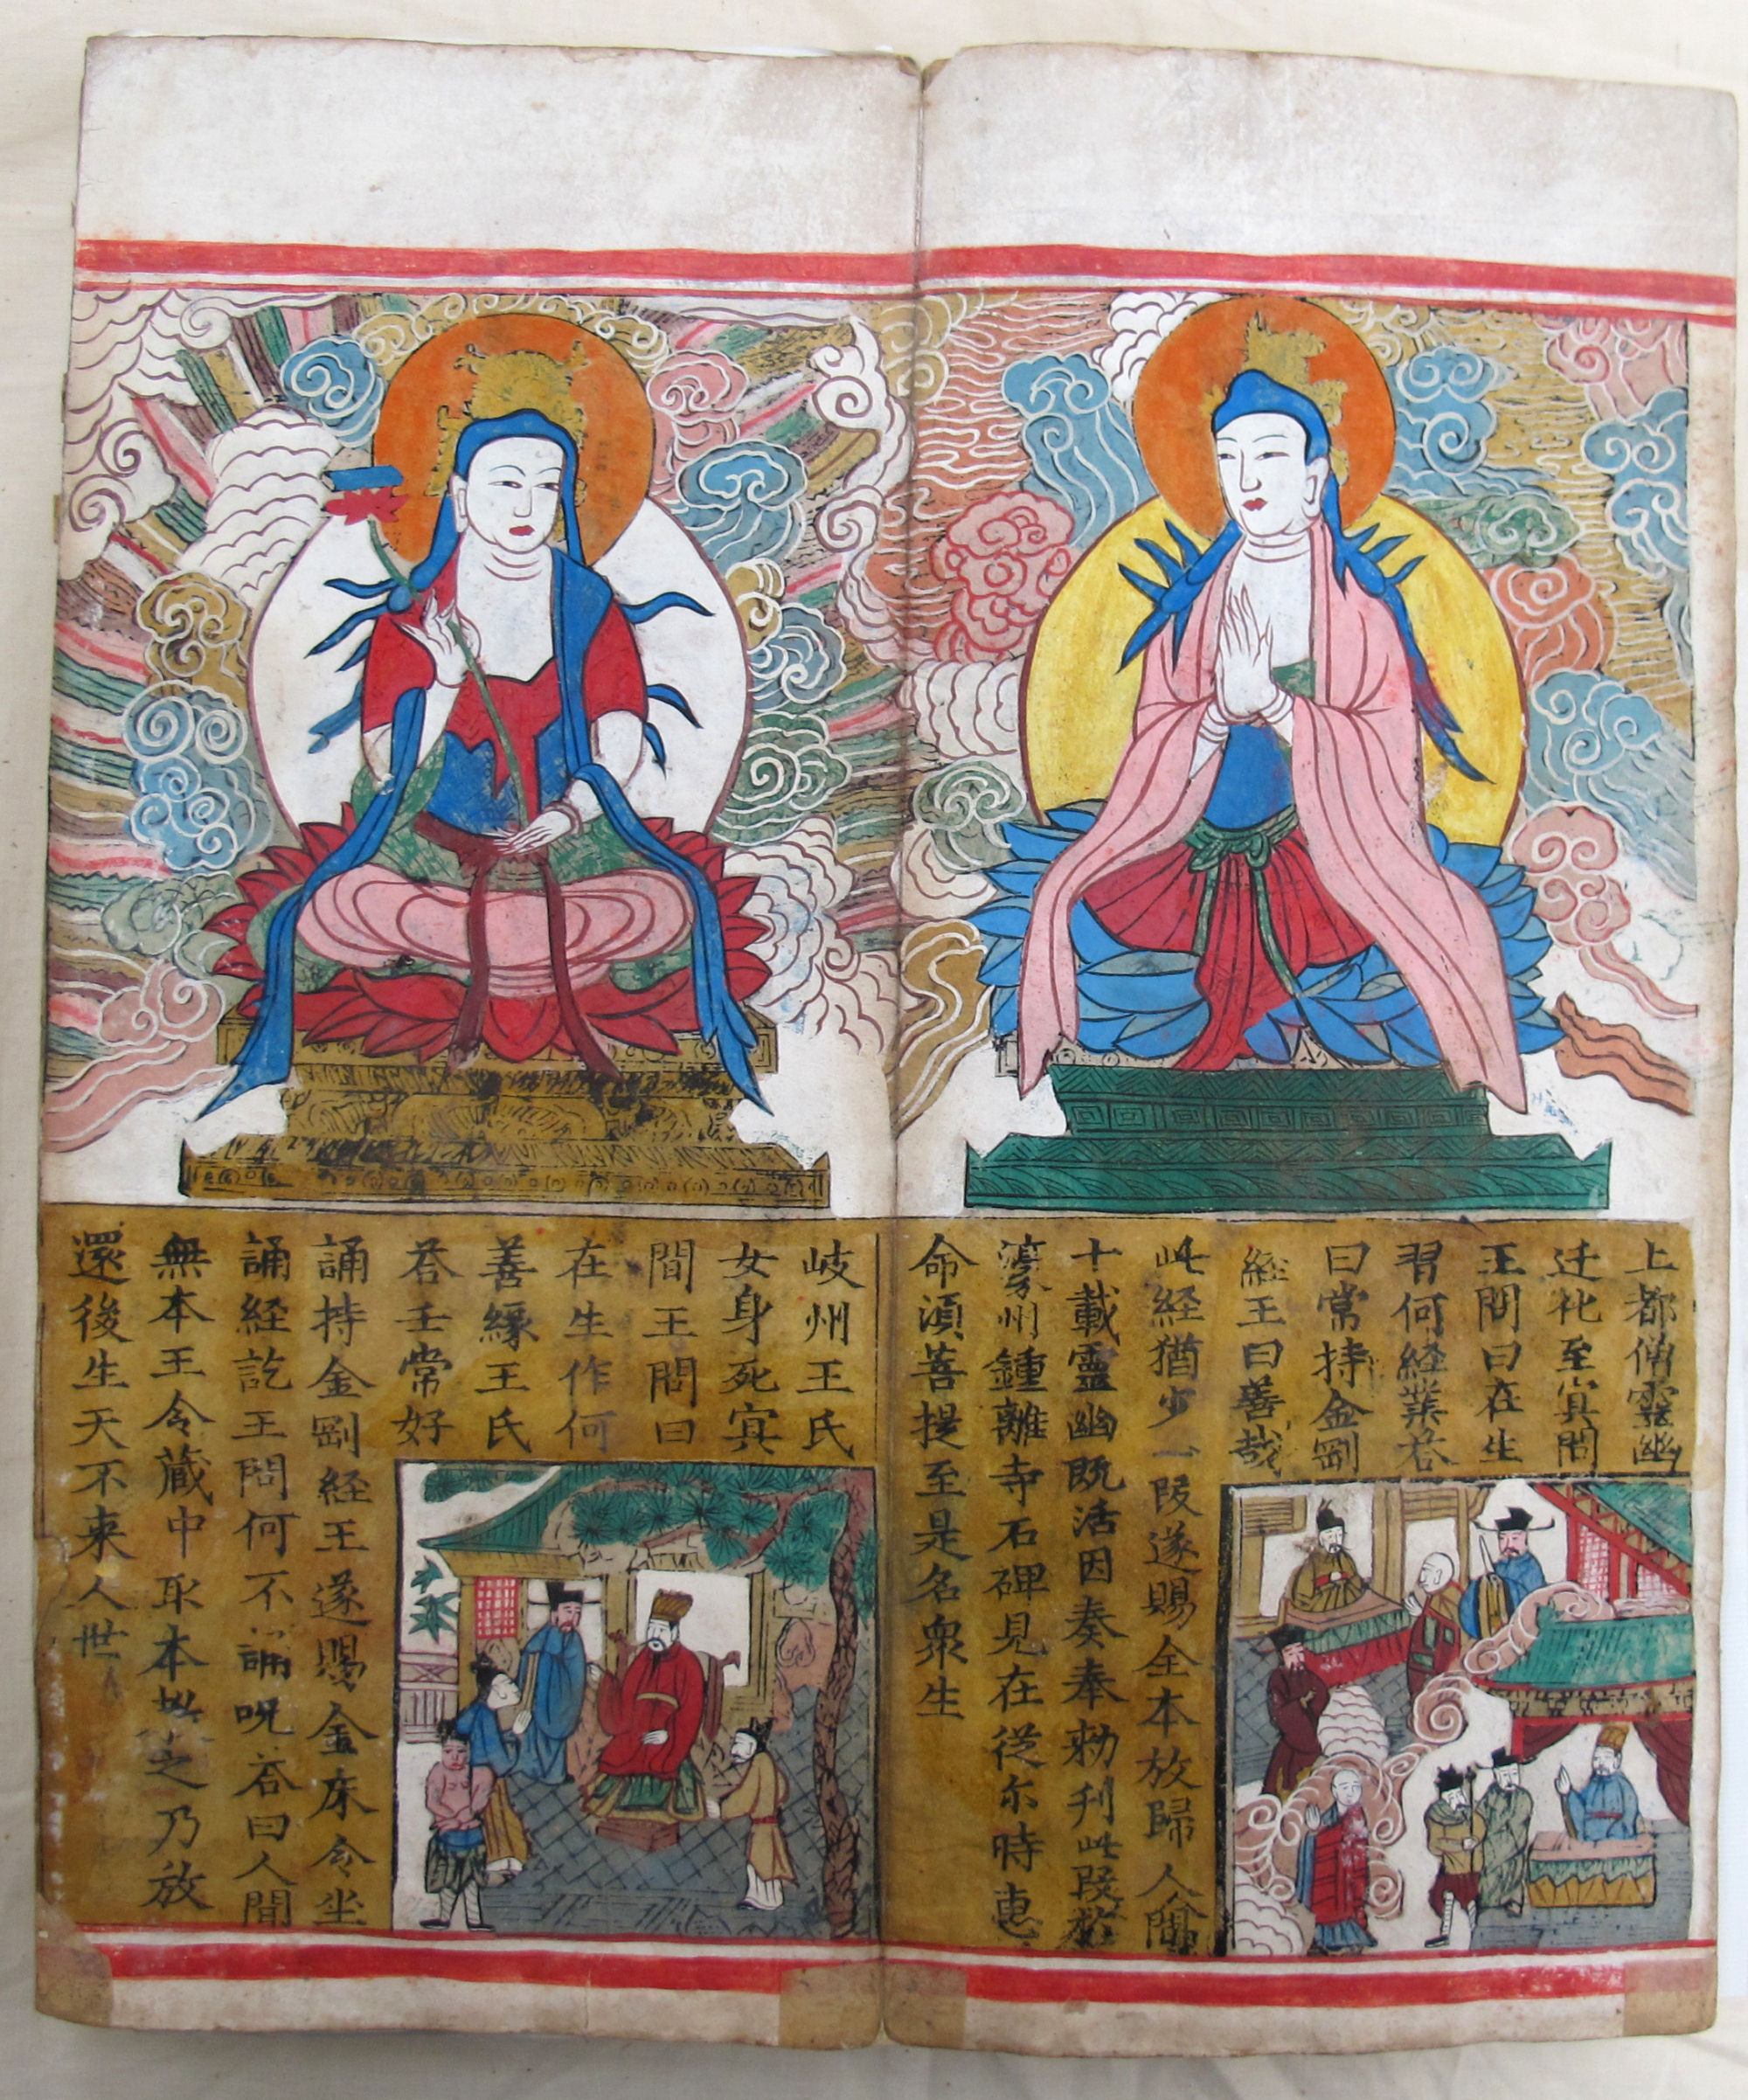 上都僧靈幽
迁化至㝠間
王問曰在生
習何経業荅
曰常持金剛
経王曰善哉
此経猶少一段遂賜全本放歸人間
十載靈幽既活因奏奉勅刋此段於
濠州鍾離寺石碑見在從尓時惠
命湏菩提至是名衆生
岐州王氏
女身死㝠
間王問曰
在生作何
善緣王氏
荅王常好
誦持金剛経王遂賜金床令坐
誦経訖王問何不誦呪荅曰人間
無本王令藏中取本與之乃放
還後生天不来人世